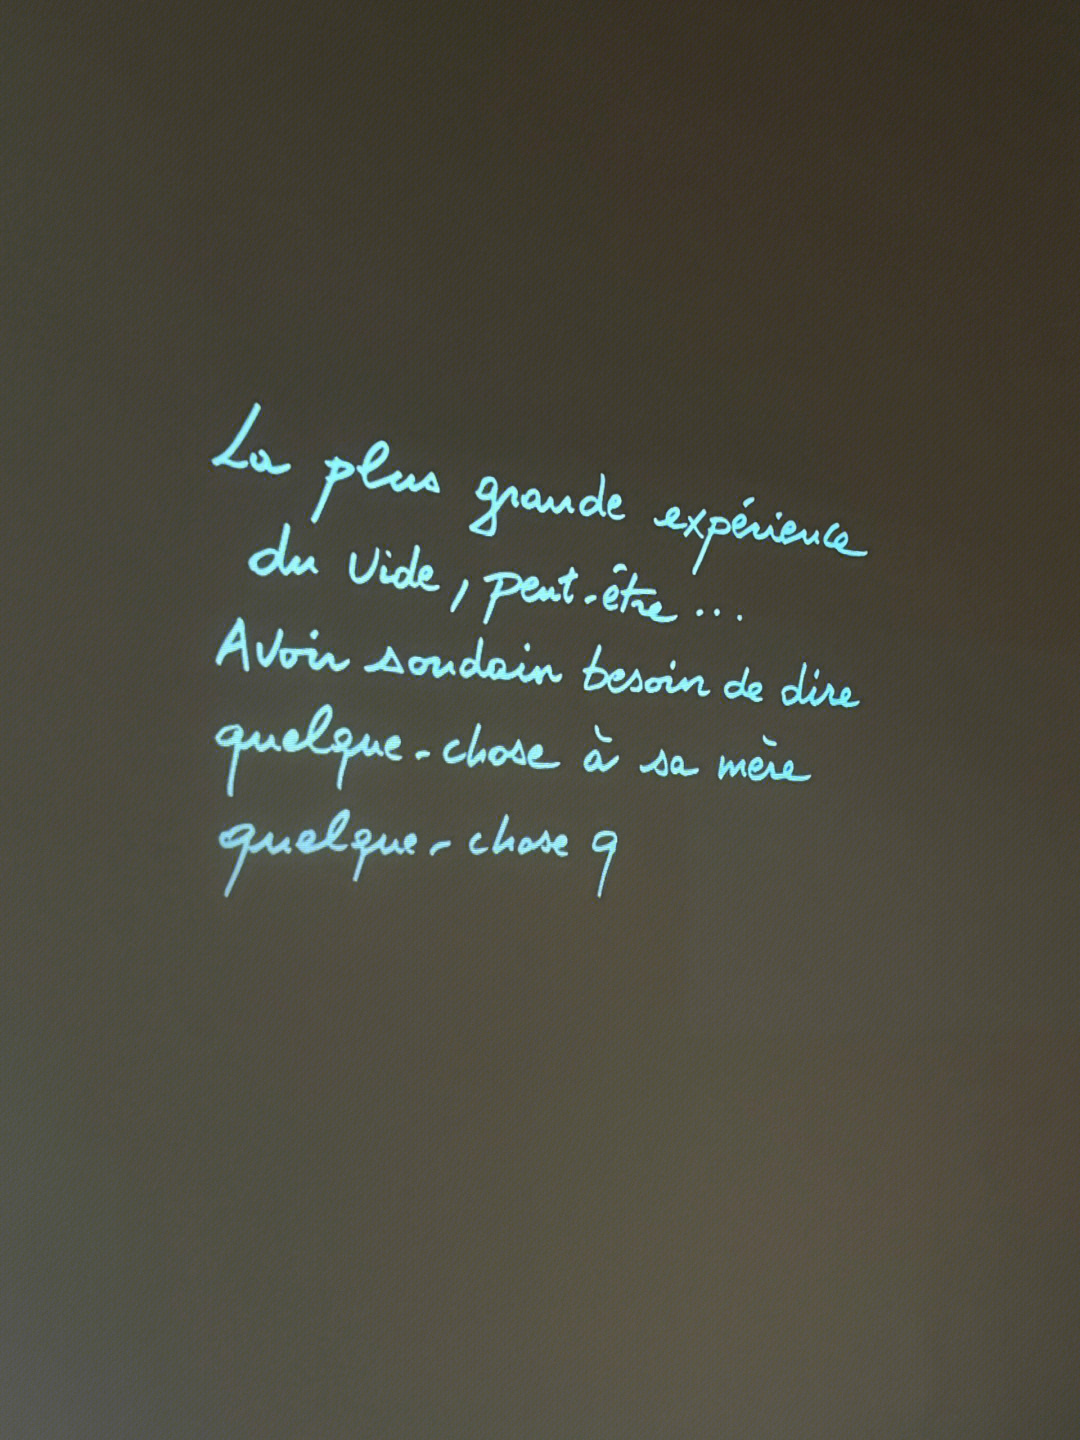 La plus grande expérience
du vide, peut-être...
Avoir soudain besoin de dire
quelque-chose à sa mère
quelque-chose q